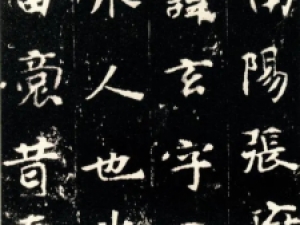 南陽張府
諱玄字
水人也出
苗裔昔